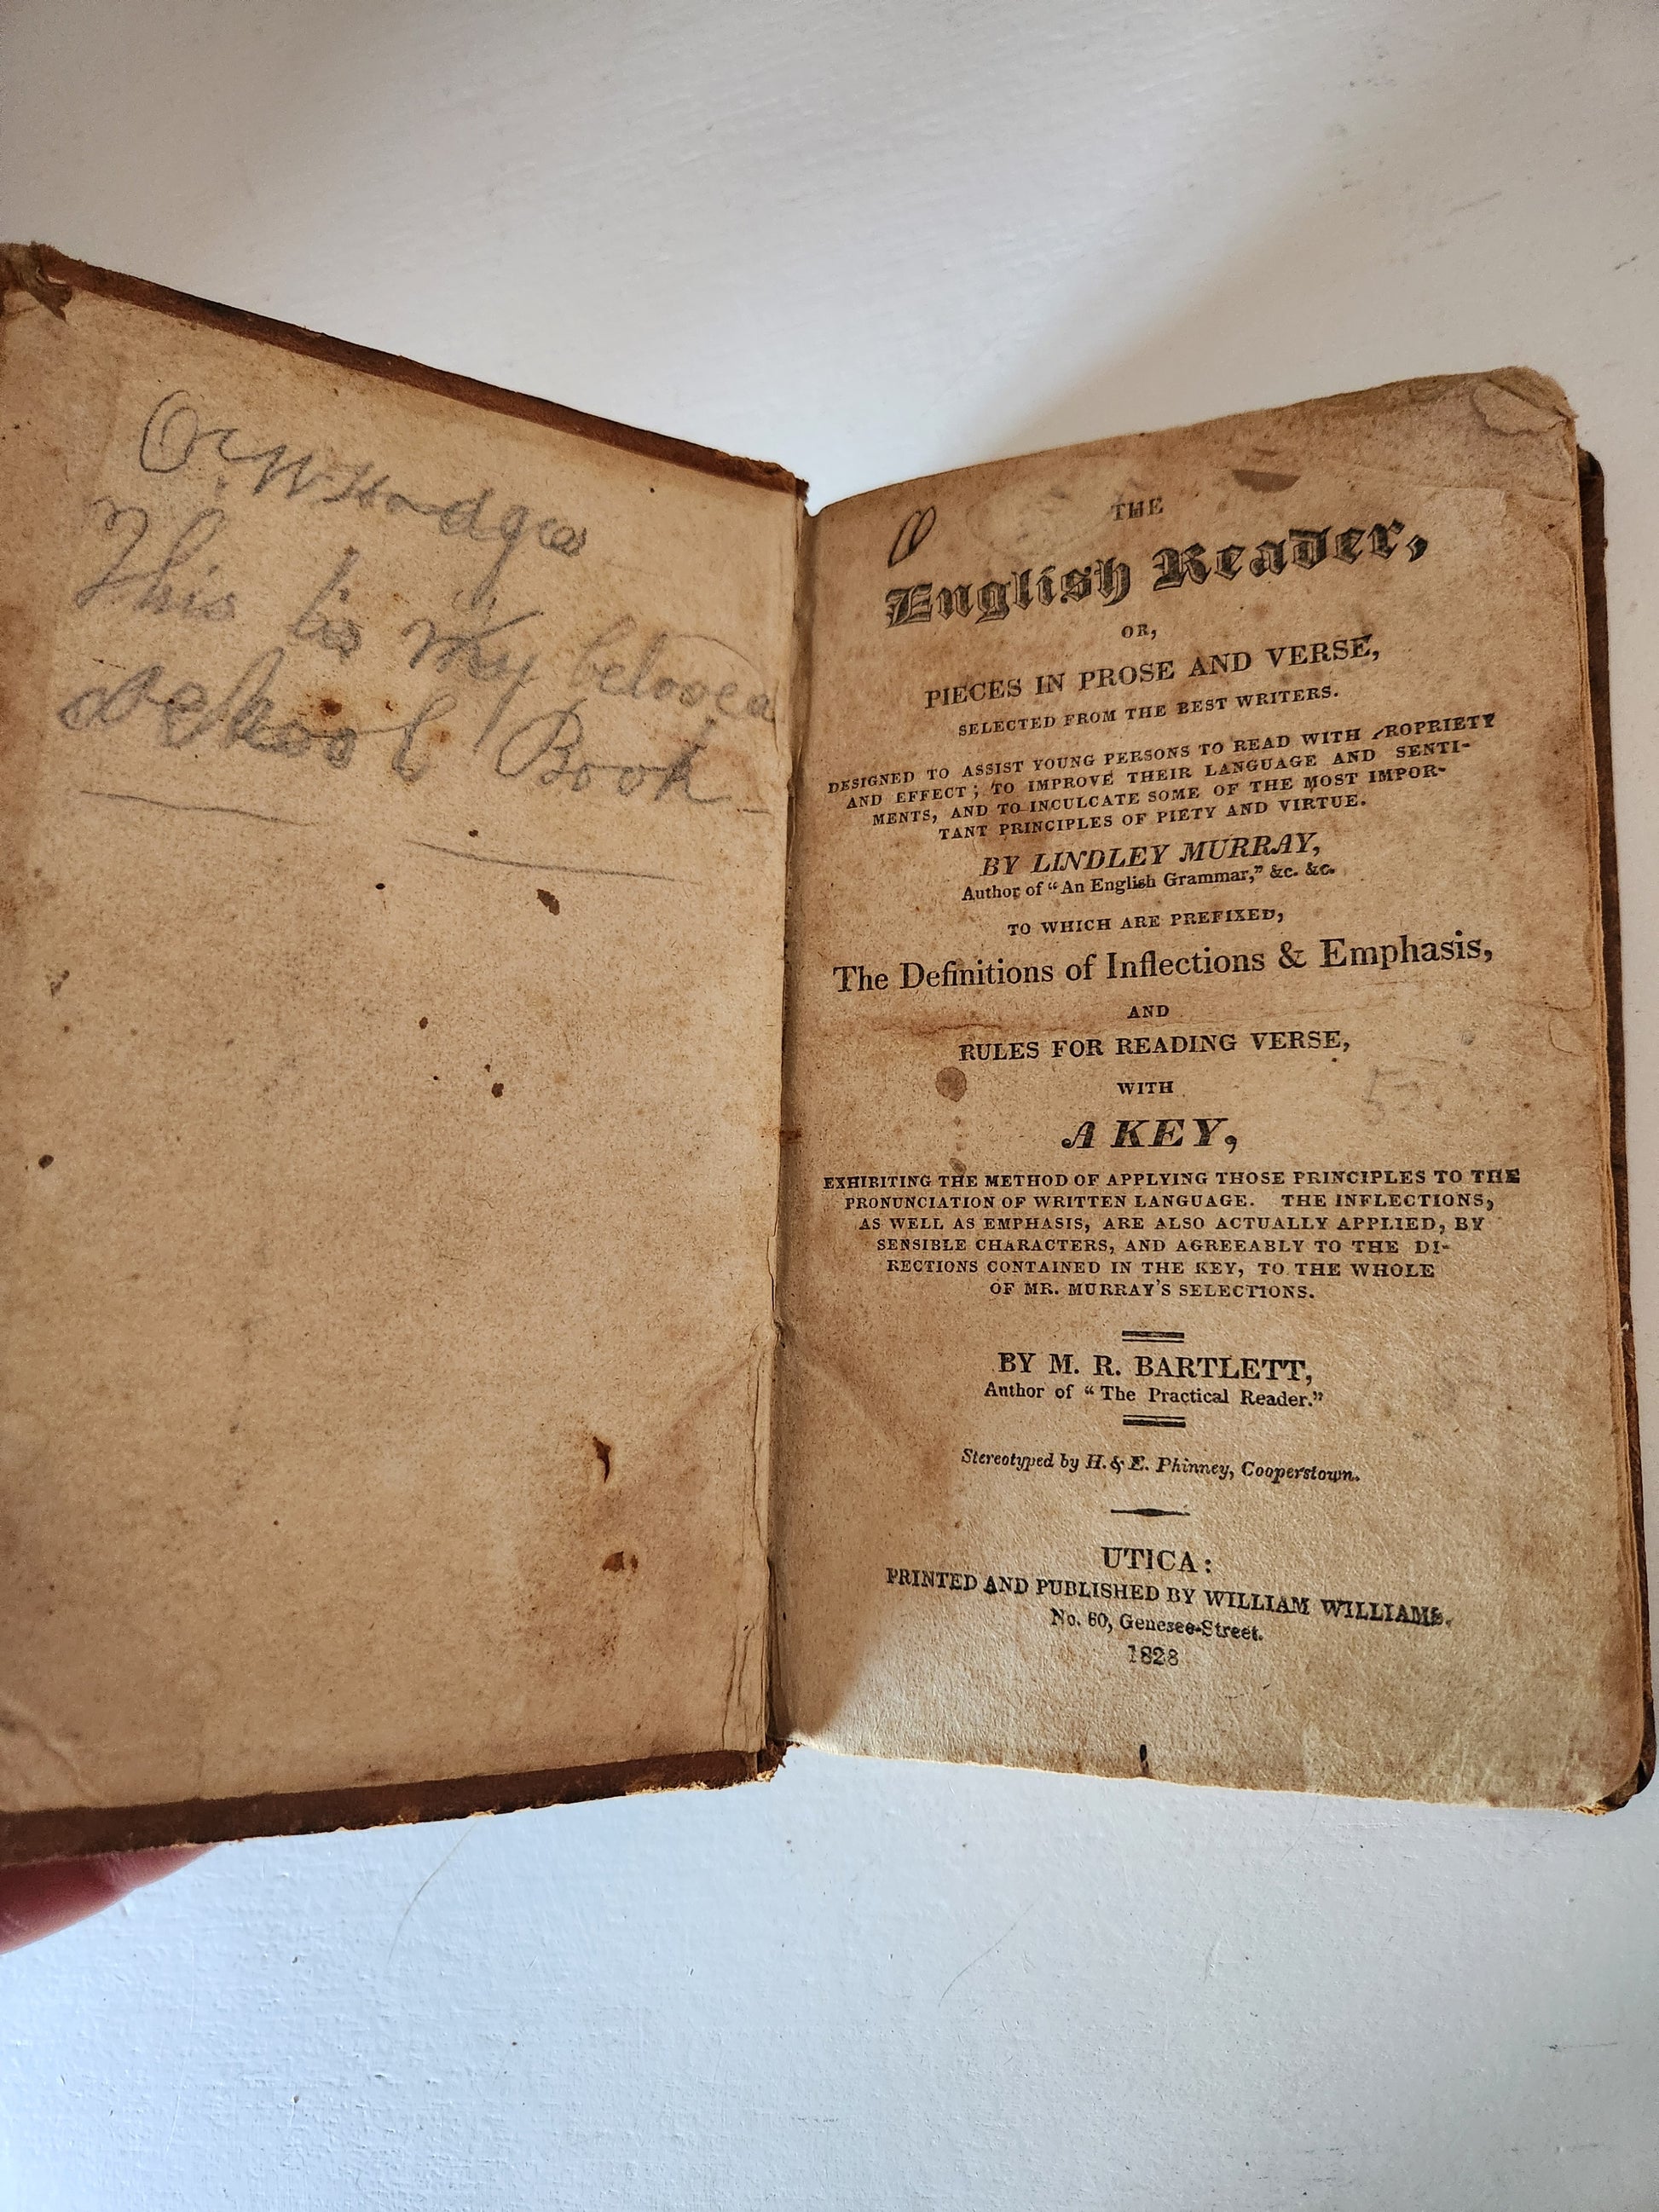 This is my beloved
School Book
THE
English Reader,
OR,
PIECES IN PROSE AND VERSE,
SELECTED FROM THE BEST WRITERS.
DESIGNED TO ASSIST YOUNG PERSONS TO READ WITH PROPRIETY
AND EFFECT; TO IMPROVE THEIR LANGUAGE AND SENTI-
MENTS, AND TO INCULCATE SOME OF THE MOST IMPOR-
TANT PRINCIPLES OF PIETY AND VIRTUE.
BY LINDLEY MURRAY,
Author of "An English Grammar," &c. &c.
TO WHICH ARE PREFIXED,
The Definitions of Inflections & Emphasis,
AND
RULES FOR READING VERSE,
WITH
A KEY,
EXHIBITING THE METHOD OF APPLYING THOSE PRINCIPLES TO THE
PRONUNCIATION OF WRITTEN LANGUAGE. THE INFLECTIONS,
AS WELL AS EMPHASIS, ARE ALSO ACTUALLY APPLIED, BY
SENSIBLE CHARACTERS, AND AGREEABLY TO THE DI-
RECTIONS CONTAINED IN THE KEY, TO THE WHOLE
OF MR. MURRAY'S SELECTIONS.
BY M. R. BARTLETT,
Author of "The Practical Reader."
Stereotyped by H. & E. Phinney, Cooperstown.
UTICA:
PRINTED AND PUBLISHED BY WILLIAM WILLIAMS.
No. 60, Genesee-Street.
1828